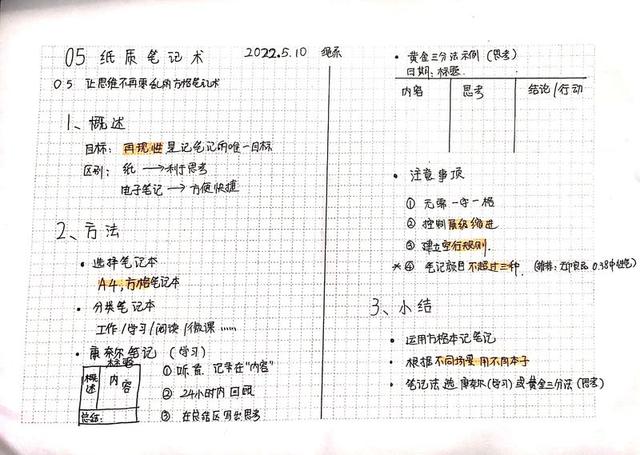 05 纸质笔记术 2022.5.10
05 让思维不再零乱的方格笔记术
1、概述
目标：再现性是记笔记的唯一目标
区别：纸 → 利于思考
电子笔记 → 方便快捷
2、方法
• 选择笔记本
A4，方格笔记本
• 分类笔记本
工作/学习/阅读/微课……
• 康奈尔笔记（学习）
标题
概述 内容
总结：
① 听/看 记录在"内容"
② 24小时内回顾
③ 在总结区写出思考
• 黄金三分法示例（思考）
日期：标题
内容 思考 结论/行动
• 注意事项
① 无需一字一格
② 控制层级缩进
③ 建立空行规则.
*④ 笔记颜色不超过三种.
3、小结
• 运用方格本记笔记
• 根据不同场景用不同本子
• 笔记法选康奈尔(学习)或黄金三分法(思考)